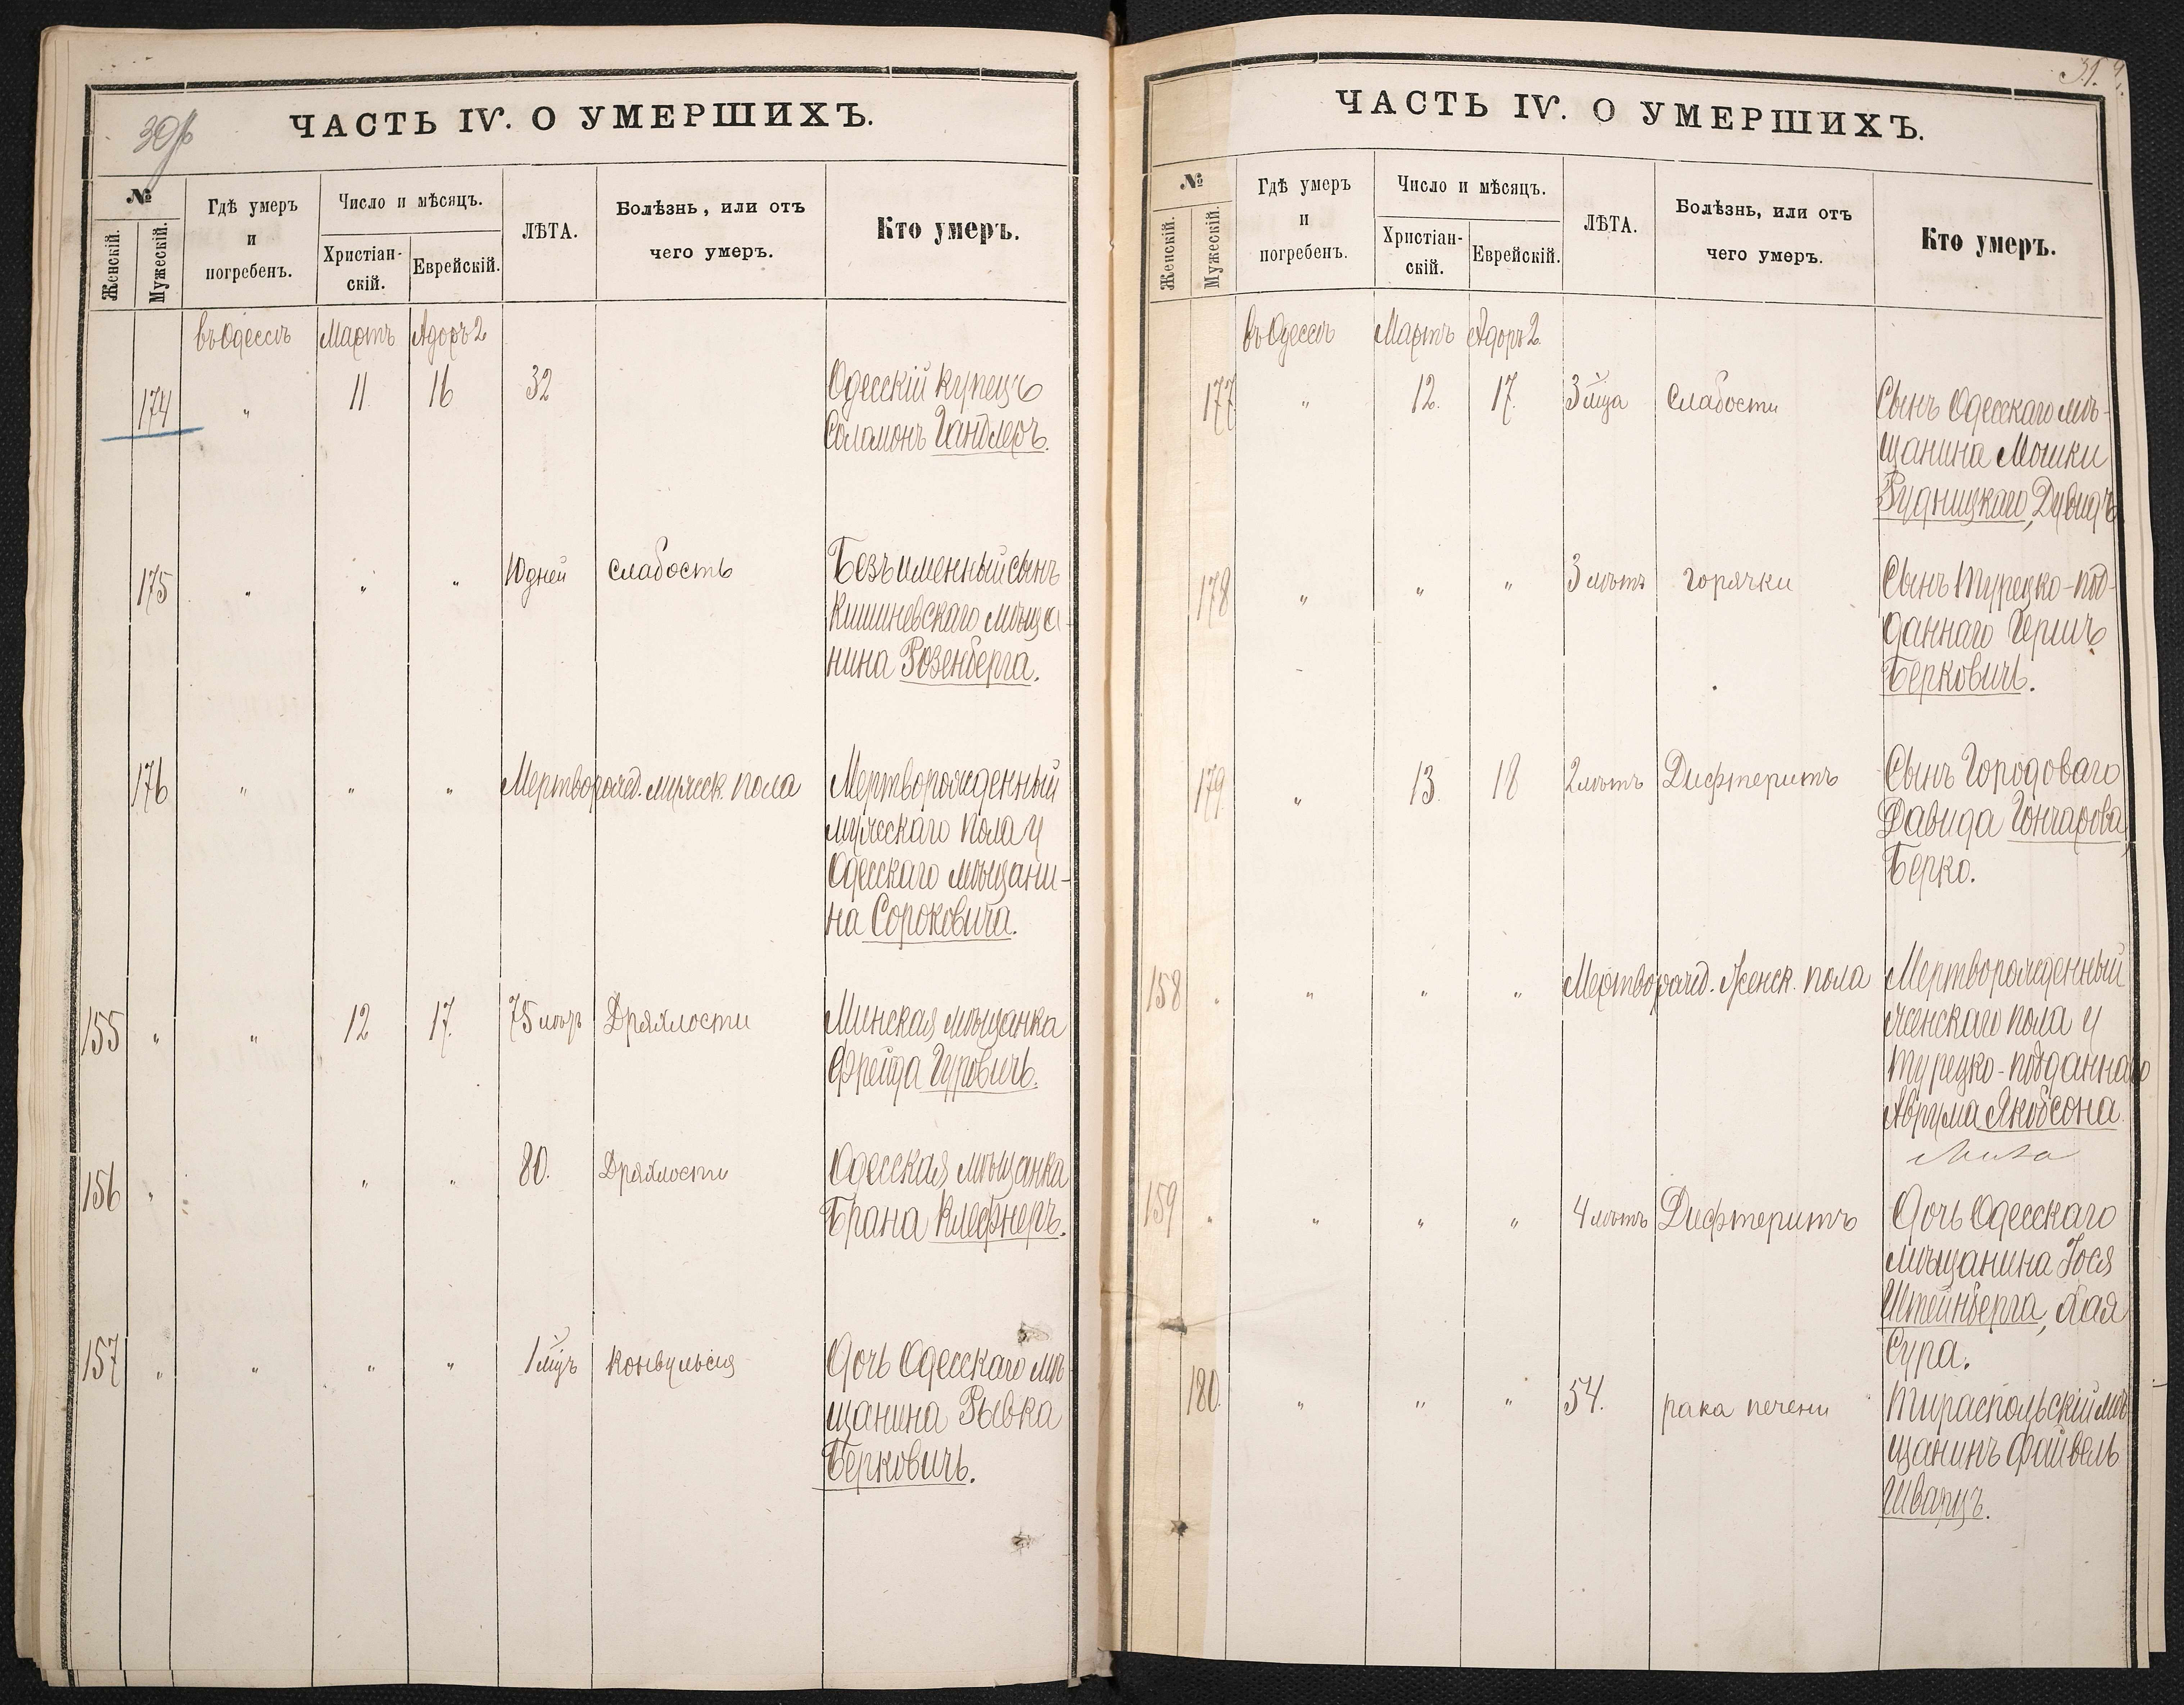 30/б
ЧАСТЬ IV. О УМЕРШИХЪ.
№
Женскій.
Мужескій.
Гдѣ умеръ
и
погребенъ.
Число и мѣсяцъ.
Христіан-
скій.
Еврейскій.
ЛѢТА.
Болѣзнь, или отъ
чего умеръ.
Кто умеръ.
въ Одессѣ Мартъ Адоръ 2
174 " 11 16 32 Одесскій купецъ
Соломонъ Гандлеръ.
175 " " " 10 дней слабость Безъименный сынъ
Кишиневскаго мѣща-
нина Розенберга.
176 " " " Мертворожд. мужеск. пола Мертворожденный
мужескаго пола у
Одесскаго мѣщани-
на Сороковича.
155 " " 12 17. 75 лѣтъ Дряхлости Минская мѣщанка
Фрейда Гуровичъ.
156 " " " 80. Дряхлости Одесская мѣщанка
Брана Клефнеръ.
157 " " " " 1 мѣцъ конвульсія Дочь Одесскаго мѣ-
щанина Рывка
Берковичъ.
31.
ЧАСТЬ IV. О УМЕРШИХЪ.
№
Женскій.
Мужескій.
Гдѣ умеръ
и
погребенъ.
Число и мѣсяцъ.
Христіан-
скій.
Еврейскій.
ЛѢТА.
Болѣзнь, или отъ
чего умеръ.
Кто умеръ.
въ Одессѣ Мартъ Адоръ 2.
177 " 12. 17. 3 мѣца слабости Сынъ Одесскаго мѣ-
щанина Мошки
Рудницкаго, Дувидъ
178 " " " 3 лѣтъ горячки Сынъ турецко-под-
даннаго Гершъ
Берковичъ.
179 " 13. 18 2 лѣтъ Дифтеритъ Сынъ Городоваго
Давида Гончарова,
Берко.
158 " " " " Мертворожд. женск. пола Мертворожденный
женскаго пола у
турецко-подданнаго
Аврума Якобсона.
159 " " " " 4 лѣтъ Дифтеритъ Дочь Одесскаго
мѣщанина Іося
Штейнберга, Хая
Сура.
180. " " " 54. рака печени Тираспольскій мѣ-
щанинъ Файвель
Шварцъ.